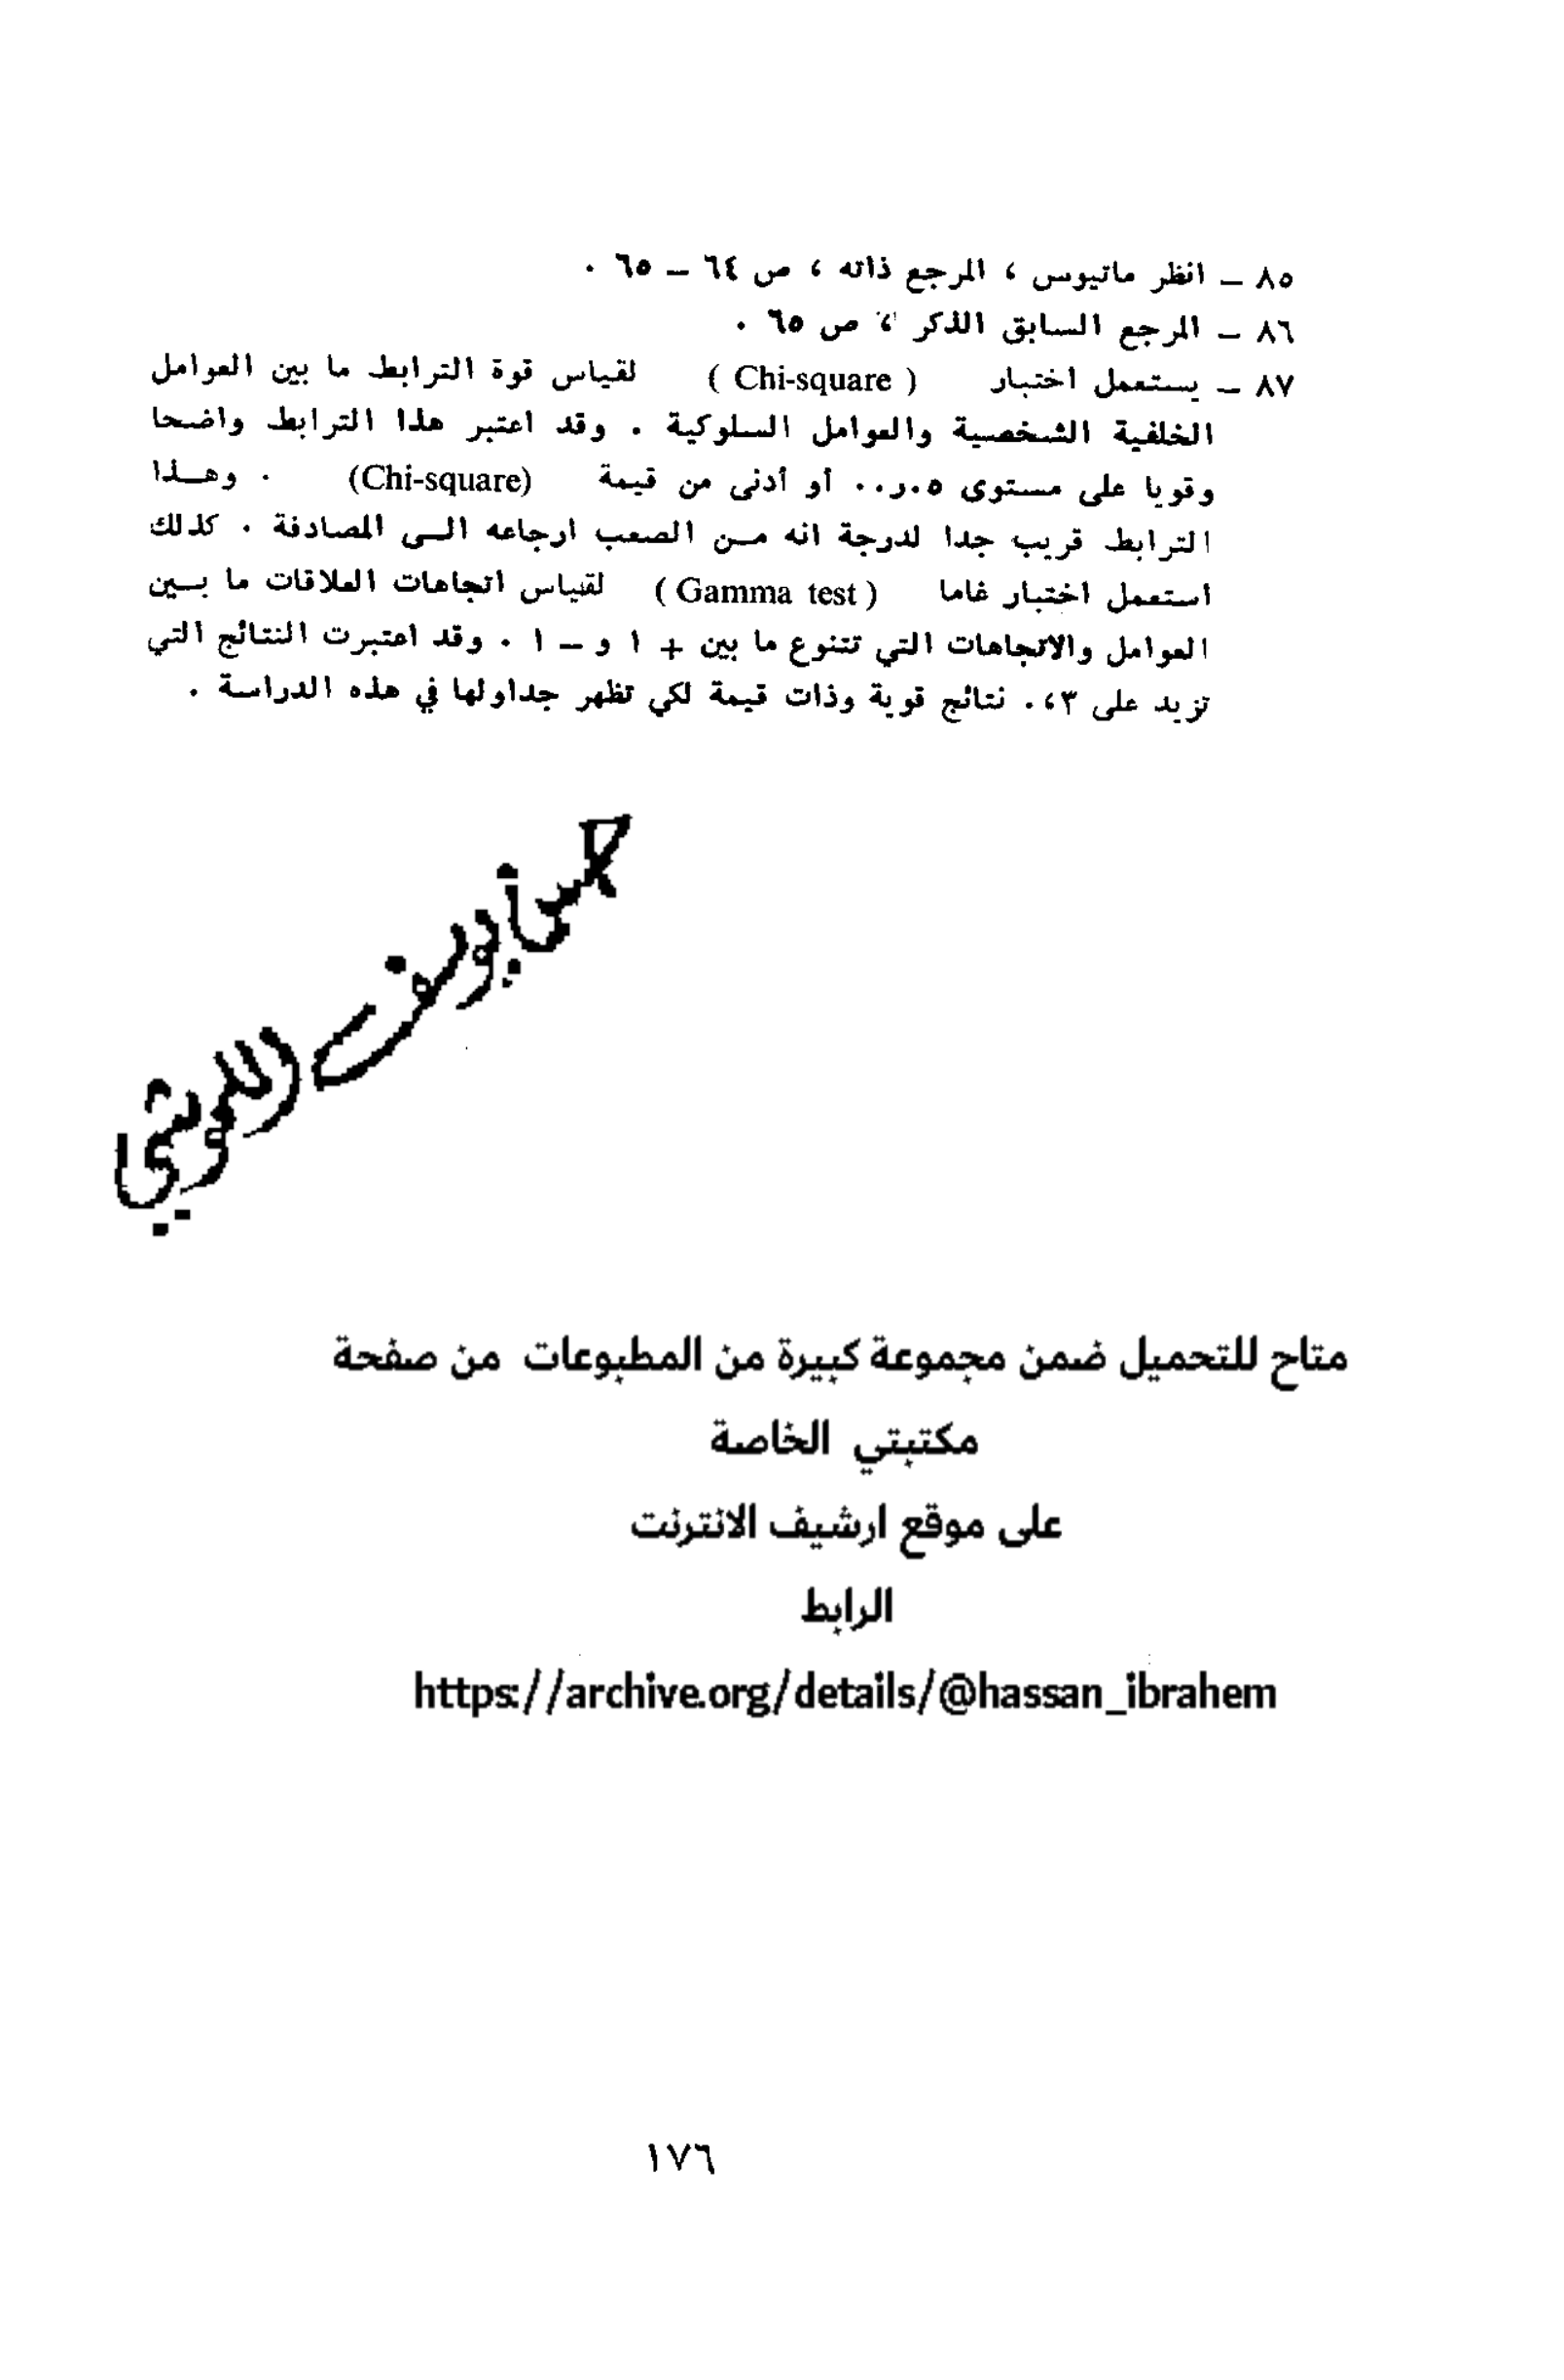 ٨٥ – انظر ماتيوس ، المرجع ذاته ، ص ٦٤ – ٦٥ .
٨٦ – المرجع السابق الذكر ، ص ٦٥ .
٨٧ – يستعمل اختبار ( Chi-square ) لقياس قوة الترابط ما بين العوامل
الخلفية الشخصية والعوامل السلوكية . وقد اعتبر هذا الترابط واضحا
وقويا على مستوى ٠٥ر٠ أو أدنى من قيمة (Chi-square) . وهــذا
الترابط قريب جدا لدرجة انه مــن الصعب ارجاعه الــى المصادفة . كذلك
استعمل اختبار غاما ( Gamma test ) لقياس اتجاهات العلاقات ما بــين
العوامل والاتجاهات التي تتنوع ما بين + ١ و – ١ . وقد اعتبرت النتائج التي
تزيد على ٣،٠ نتائج قوية وذات قيمة لكي تظهر جداولها في هذه الدراسة .
متاح للتحميل ضمن مجموعة كبيرة من المطبوعات من صفحة
مكتبتي الخاصة
على موقع ارشيف الانترنت
الرابط
https://archive.org/details/@hassan_ibrahem
١٧٦